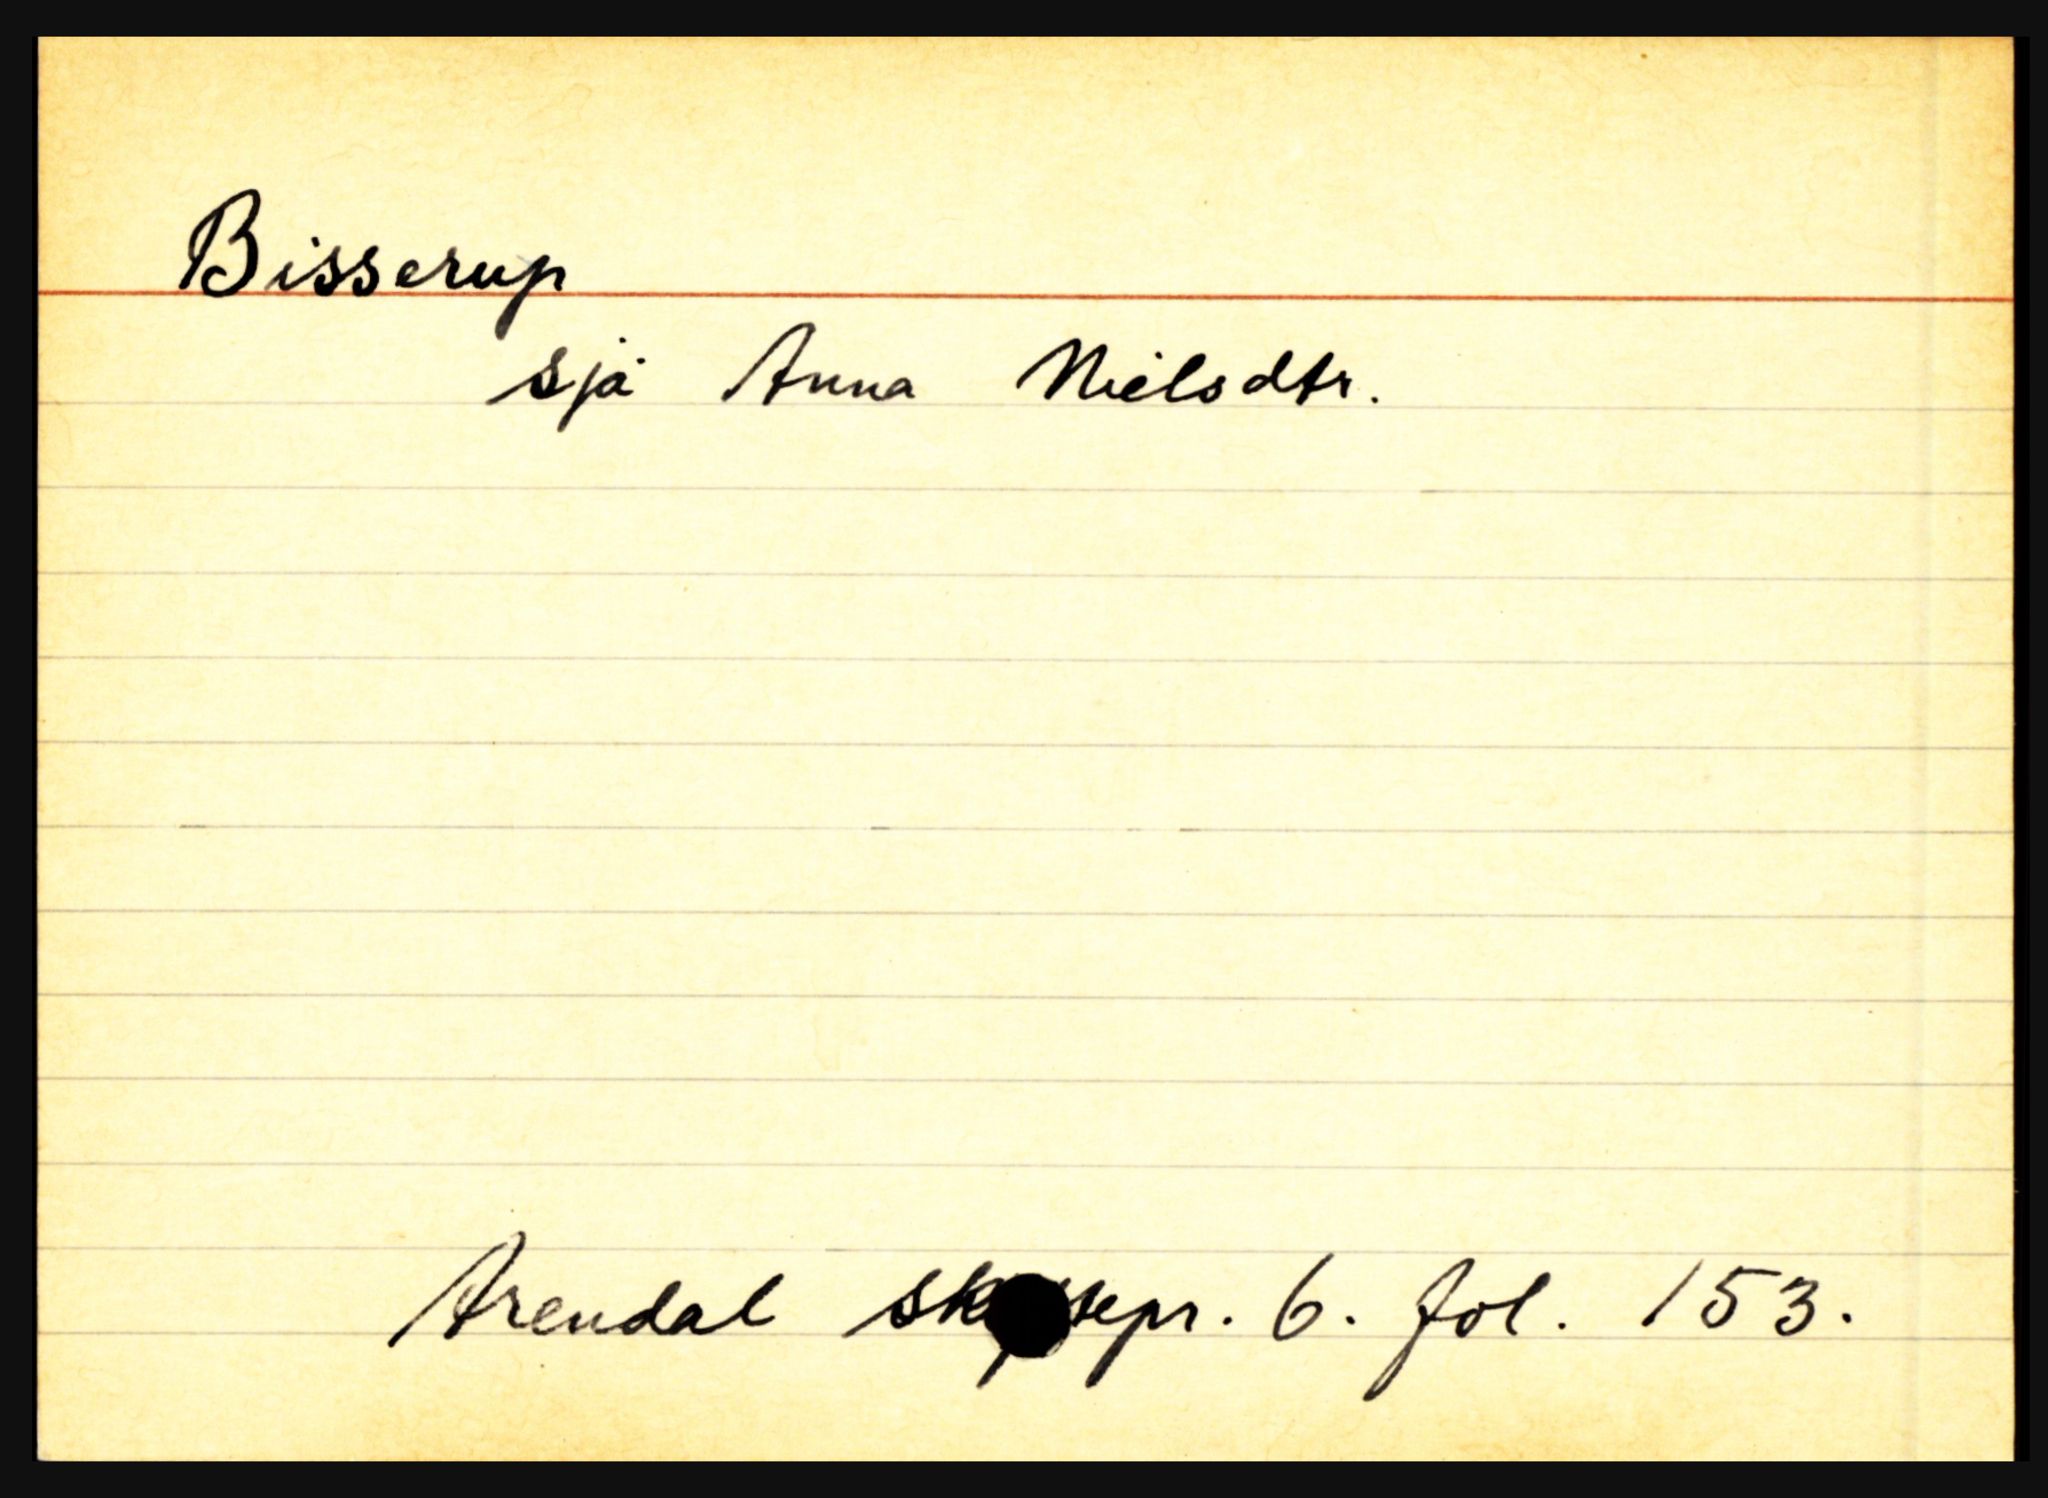 Bisserup
sjå Anna Nielsdtr.
Arendal 6. fol. 153.